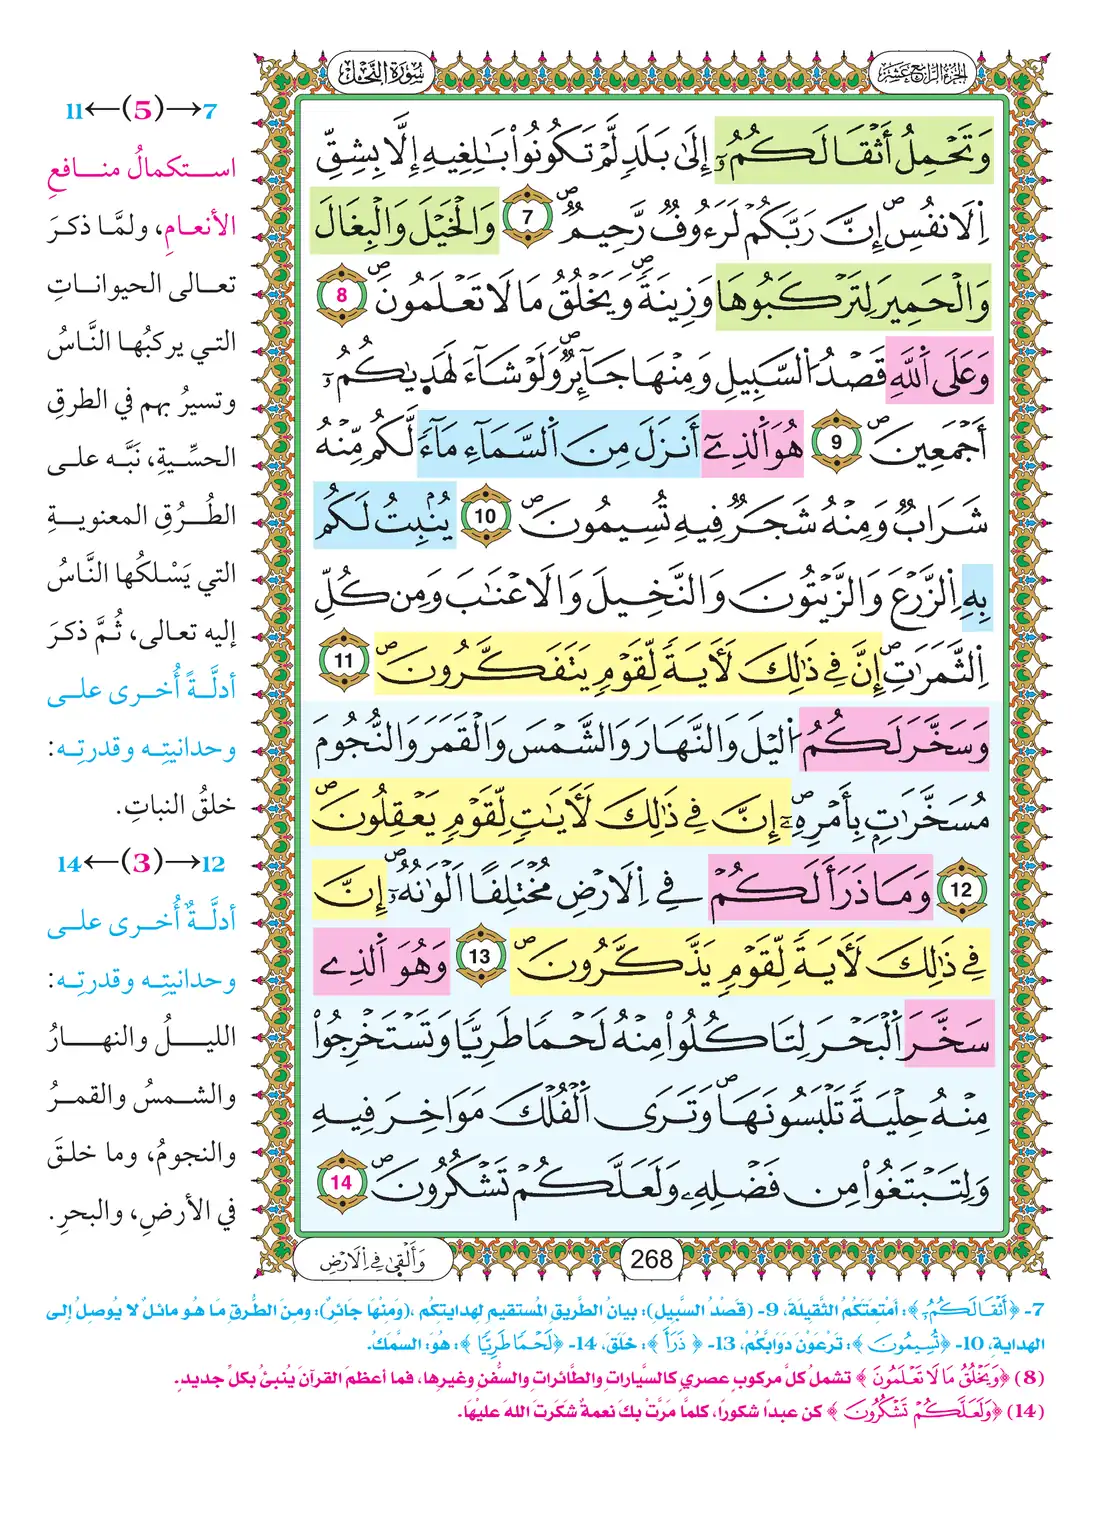 سُورَةُ النَّحْل
الجُزءُ الرَّابِعَ عَشَرَ
وَتَحْمِلُ أَثْقَالَكُمُۥٓ إِلَىٰ بَلَدٍ لَّمْ تَكُونُواْ بَٰلِغِيهِ إِلَّا بِشِقِّ
اِ۬لَانفُسِۖ إِنَّ رَبَّكُمْ لَرَءُوفٌ رَّحِيمٌۖ 7 وَالْخَيْلَ وَالْبِغَالَ
وَالْحَمِيرَ لِتَرْكَبُوهَا وَزِينَةٗۖ وَيَخْلُقُ مَا لَا تَعْلَمُونَۖ 8
وَعَلَى اَ۬للَّهِ قَصْدُ اُ۬لسَّبِيلِ وَمِنْهَا جَآئِرٌۖ وَلَوْ شَآءَ لَهَدٜيٰكُمُۥٓ
أَجْمَعِينَۖ 9 هُوَ اَ۬لذِےٓ أَنزَلَ مِنَ اَ۬لسَّمَآءِ مَآءٗ لَّكُم مِّنْهُ
شَرَابٌ وَمِنْهُ شَجَرٌ فِيهِ تُسِيمُونَۖ 10 يُنۢبِتُ لَكُم
بِهِ اِ۬لزَّرْعَ وَالزَّيْتُونَ وَالنَّخِيلَ وَالَاعْنَٰبَ وَمِن كُلِّ
اِ۬لثَّمَرَٰتِۖ إِنَّ فِي ذَٰلِكَ لَأٓيَةٗ لِّقَوْمٖ يَتَفَكَّرُونَۖ 11
وَسَخَّرَ لَكُمُ اُ۬ليْلَ وَالنَّهَارَ وَالشَّمْسَ وَالْقَمَرَ وَالنُّجُومَ
مُسَخَّرَٰتِۭ بِأَمْرِهِۦٓۖ إِنَّ فِي ذَٰلِكَ لَأٓيَٰتٖ لِّقَوْمٖ يَعْقِلُونَۖ
12 وَمَا ذَرَأَ لَكُمْ فِي اِ۬لَارْضِ مُخْتَلِفاً اَلْوَٰنُهُۥٓۖ إِنَّ
فِي ذَٰلِكَ لَأٓيَةٗ لِّقَوْمٖ يَذَّكَّرُونَۖ 13 وَهُوَ اَ۬لذِے
سَخَّرَ اَ۬لْبَحْرَ لِتَاكُلُواْ مِنْهُ لَحْماً طَرِيّاً وَتَسْتَخْرِجُواْ
مِنْهُ حِلْيَةٗ تَلْبَسُونَهَاۖ وَتَرَى اَ۬لْفُلْكَ مَوَاخِرَ فِيهِ
وَلِتَبْتَغُواْ مِن فَضْلِهِۦ وَلَعَلَّكُمْ تَشْكُرُونَۖ 14
268
وَأَلْقَىٰ فِي اِ۬لَارْضِ
7→(5)←11
استكمالُ منافعِ
الأنعامِ، ولمَّا ذكرَ
تعالى الحيواناتِ
التي يركبُها النَّاسُ
وتسيرُ بهم في الطرقِ
الحسِّيةِ، نَبَّه على
الطُرُقِ المعنويةِ
التي يَسْلكُها النَّاسُ
إليه تعالى، ثُمَّ ذكرَ
أدلَّةً أُخرى على
وحدانيتِه وقدرتِه:
خلقُ النباتِ.
12→(3)←14
أدلَّةٌ أُخرى على
وحدانيتِه وقدرتِه:
الليلُ والنهارُ
والشمسُ والقمرُ
والنجومُ، وما خلقَ
في الأرضِ، والبحرِ.
7- ﴿أَثْقَالَكُمُۥٓ﴾: أمْتِعَتَكُمُ الثَّقِيلَةَ، 9- (قَصْدُ السَّبِيلِ): بيانُ الطَّرِيقِ المُستَقِيمِ لِهدايتِكُم، (وَمِنْهَا جَائِرٌ): ومِنَ الطُّرقِ مَا هُو مائلٌ لا يُوصِلُ إلى
الهدايةِ، 10- ﴿تُسِيمُونَ﴾: تَرْعَوْنَ دَوَابَّكُمْ، 13- ﴿ذَرَأَ﴾: خلَقَ، 14- ﴿لَحْماً طَرِيّاً﴾: هُوَ: السَّمَكُ.
(8) ﴿وَيَخْلُقُ مَا لَا تَعْلَمُونَ﴾ تشملُ كلَّ مركوبٍ عصريٍ كالسَّياراتِ والطَّائراتِ والسُّفنِ وغيرِها، فما أعظمَ القرآنَ يُنبئُ بكلِّ جديدٍ.
(14) ﴿وَلَعَلَّكُمْ تَشْكُرُونَ﴾ كن عبدًا شكورًا، كلمَّا مَرَّتْ بكَ نعمةٌ شَكَرتَ اللهَ عليْهَا.